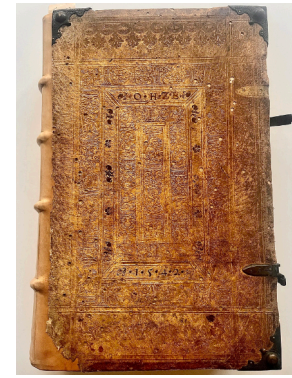 O·H·Z·B
1·5·4·2